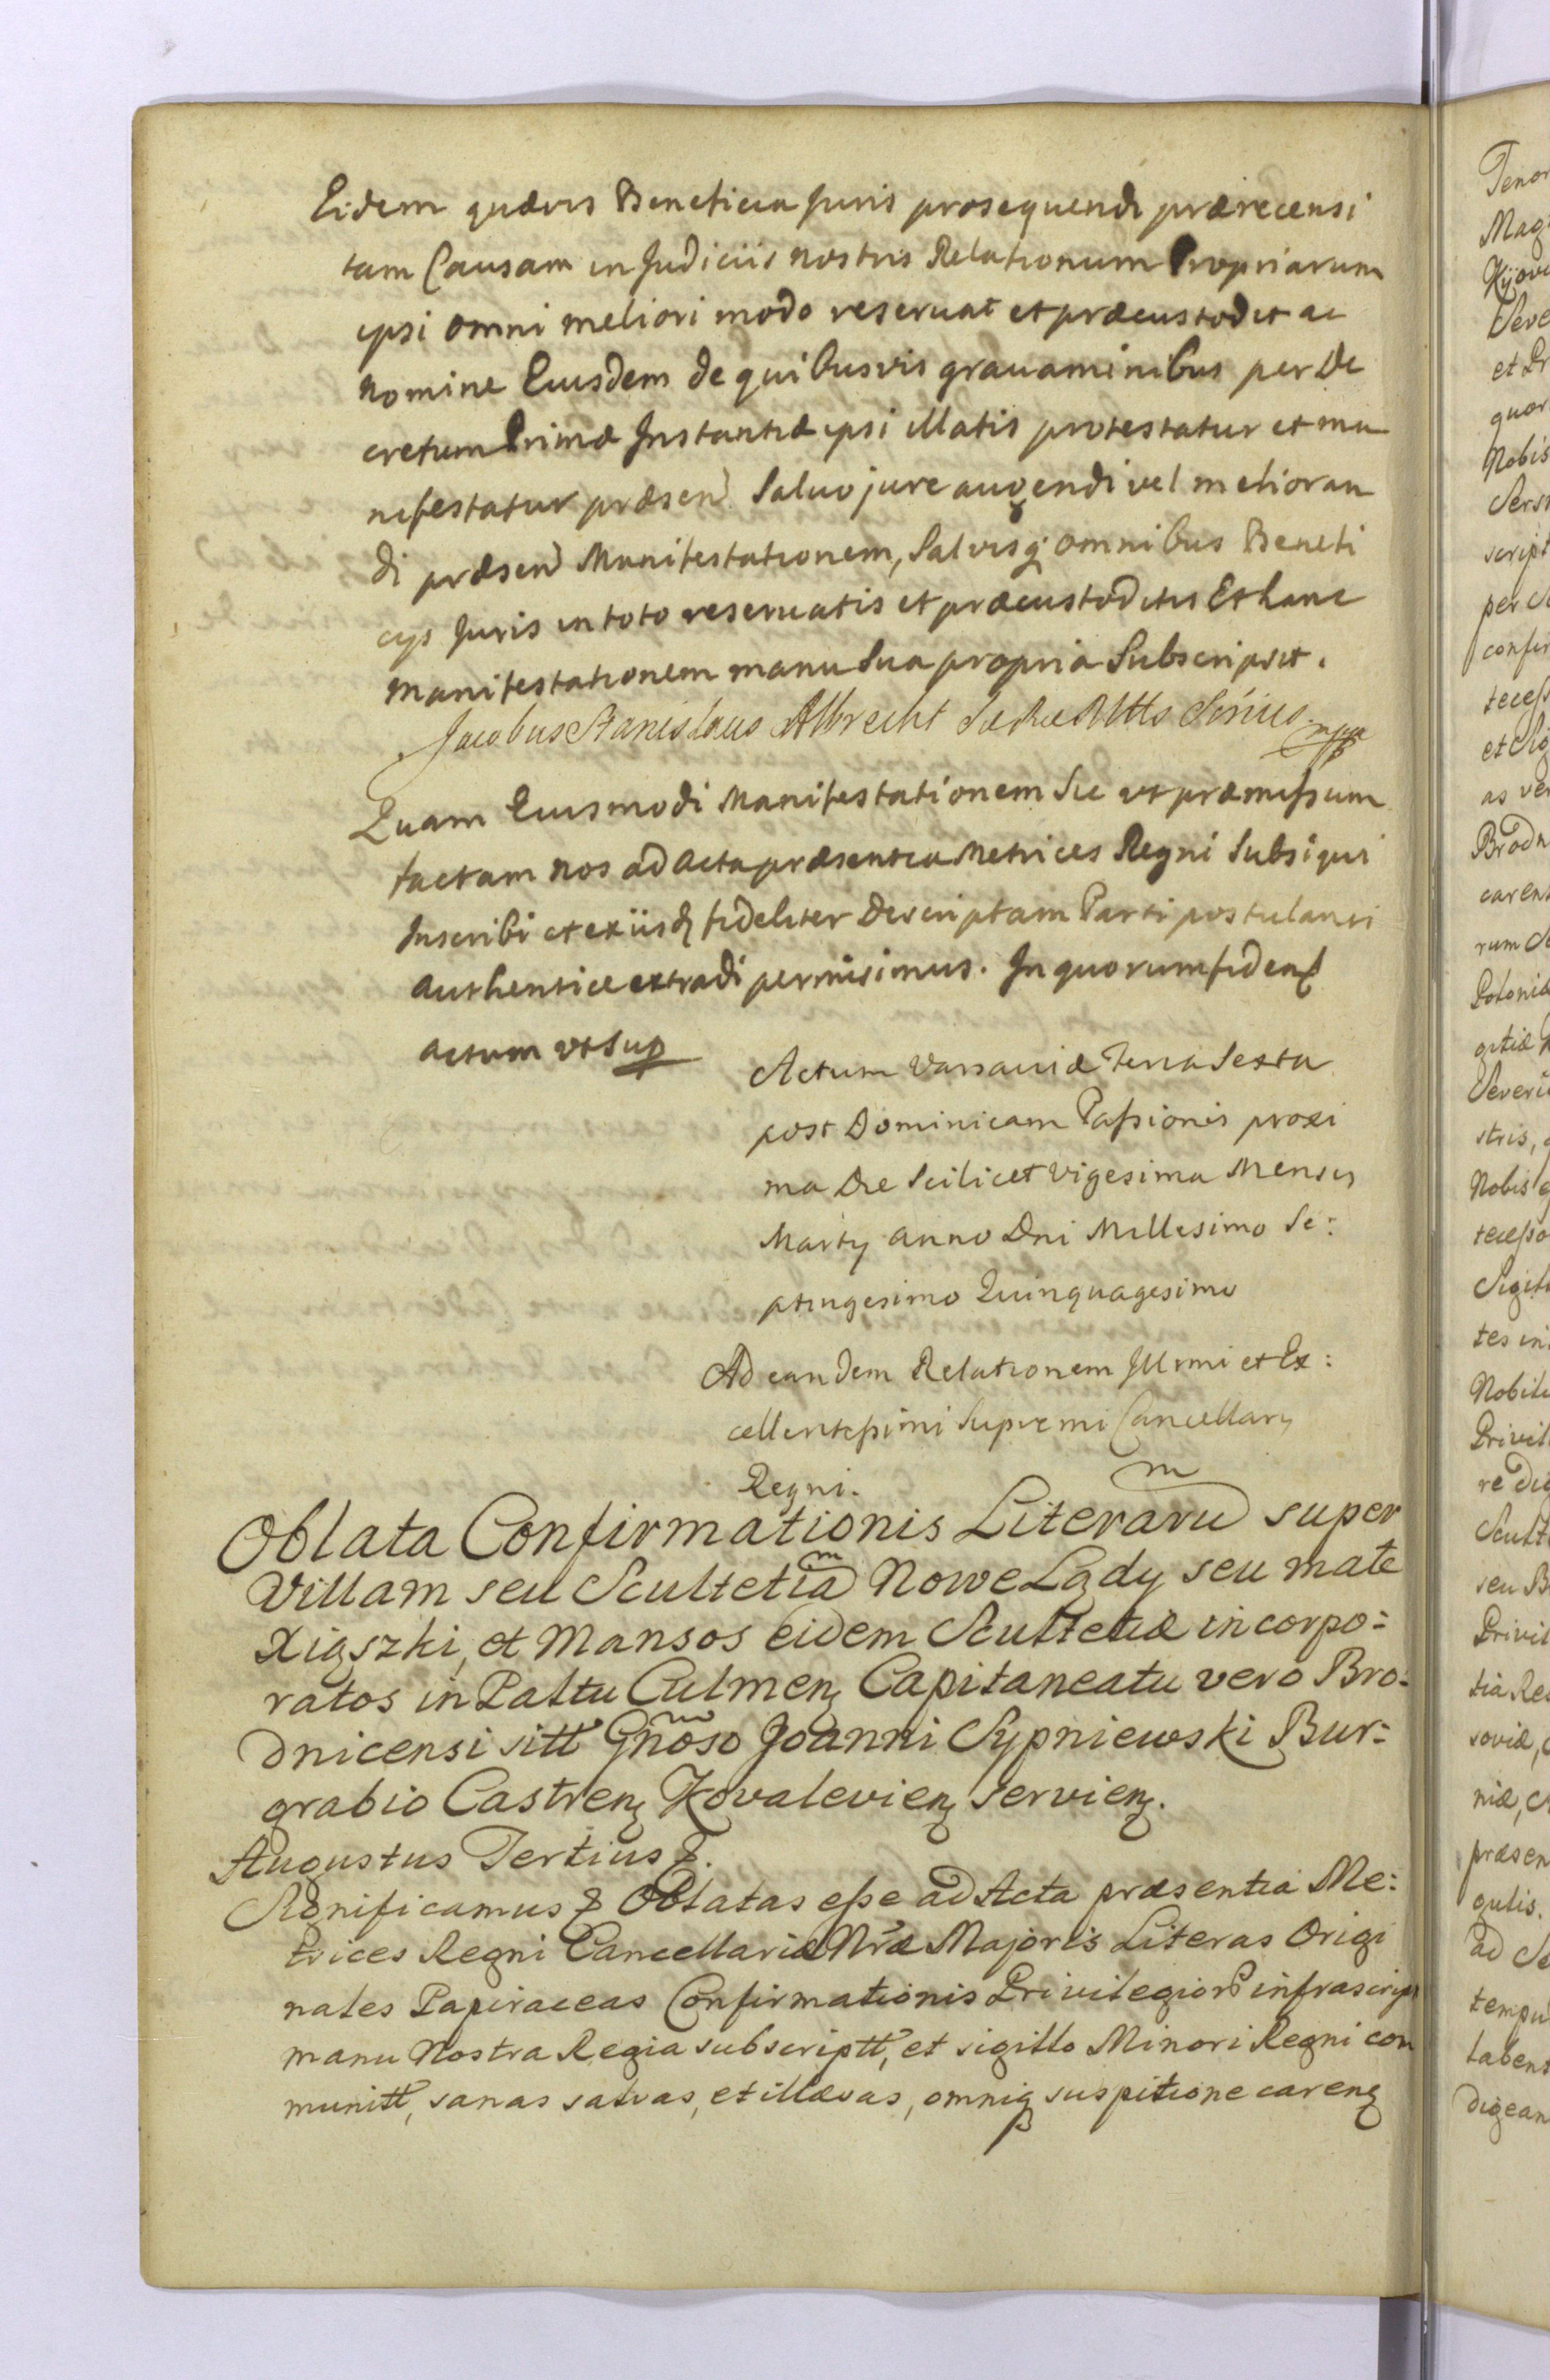 Eidem quævis Beneficia Juris prosequendi prærecensi
tam Causam in Judiciis nostris Relationum Propriarum
ipsi omni meliori modo reseruat et præcustodit ac
nomine Eiusdem de quibusvis grauaminibus per De
cretum Primæ Instantiæ ipsi illatis protestatur et ma
nifestatur præsen Saluo jure augendi vel melioran
di præsen Manifestationem, Salvisq omnibus Benefi
cys Juris in toto reseruatis et præcustoditis Et hanc
manifestationem manu Sua propria Subscripsit.
Jacobus Stanislaus Albrecht SæRæMttis mpp
Quam Eiusmodi Manifestationem Sic ut præmissum
factam nos ad acta præsentia Metrices Regni Subsiqui
Inscribi et ex iisd fideliter Descriptam Parti postulanti
authentice extradi permisimus. In quorum fidem
actum ut Sup
Actum Varsaviæ Feria Sexta
post Dominicam Passionis proxi
ma Die Scilicet Vigesima Mensis
Marty anno Dni Millesimo Se:
ptingesimo Quinquagesimo
Ad eandem Relationem Illrmi et Ex:
cellentissimi Supremi Cancellary
Regni.
Oblata Confirmationis Literaru super
Villam seu Scultetia Nowe Lądy seu małe
Xiąszki, et Mansos eidem Scultetiæ incorpo=
ratos in Paltu Culmen Capitaneatu vero Bro=
dnicensi sitt Gnoso Joanni Sypniewski Bur=
grabio Castren Kovalevien servien.
Augustus Tertius &.
Significamus & Oblatas esse ad Acta præsentia Me:
trices Regni Cancellariæ Nræ Majoris Literas Origi
nales Papiraceas Confirmationis Privilegior infrascript
manu Nostra Regia subscriptt, et sigillo Minori Regni com
munitt, sanas salvas, et illæsas, omniq suspitione caren